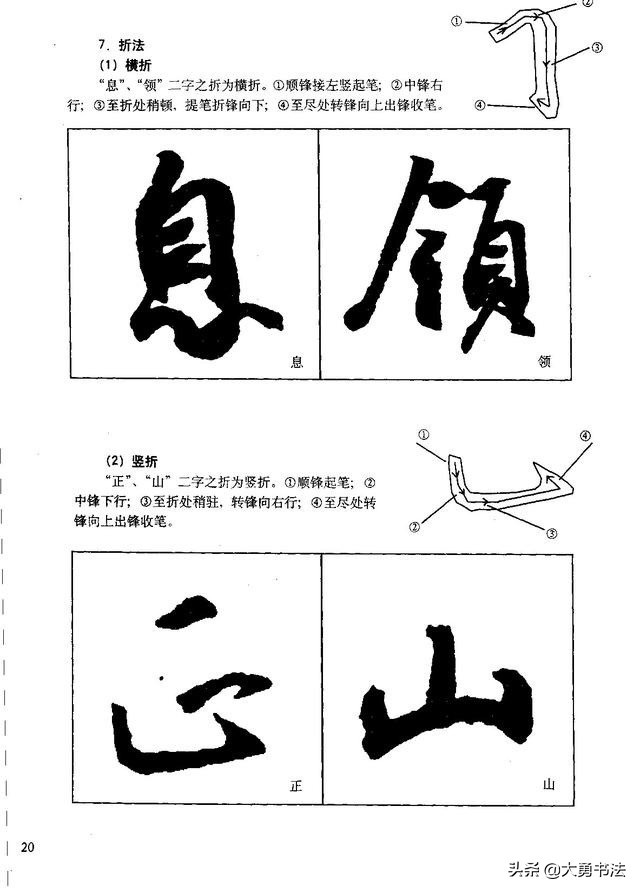 7．折法
（1）横折
“息”、“领”二字之折为横折。①顺锋接左竖起笔；②中锋右
行；③至折处稍顿，提笔折锋向下；④至尽处转锋向上出锋收笔。
①
②
③
④
息
領
息
领
（2）竖折
“正”、“山”二字之折为竖折。①顺锋起笔；②
中锋下行；③至折处稍驻，转锋向右行；④至尽处转
锋向上出锋收笔。
①
④
②
③
正
山
正
山
20
头条 @大勇书法